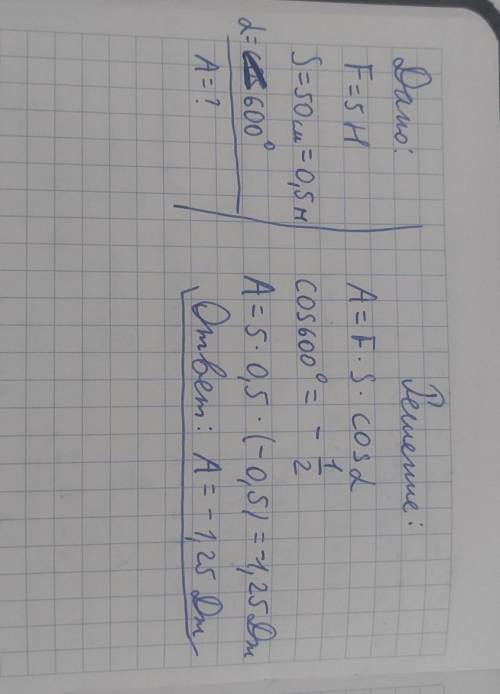 Дано:
F = 5 Н
S = 50 см = 0,5 м
α = 600°
A = ?
Решение:
A = F · S · cosα
cos600° = - 1/2
A = 5 · 0,5 · (-0,5) = -1,25 Дж
Ответ: A = -1,25 Дж